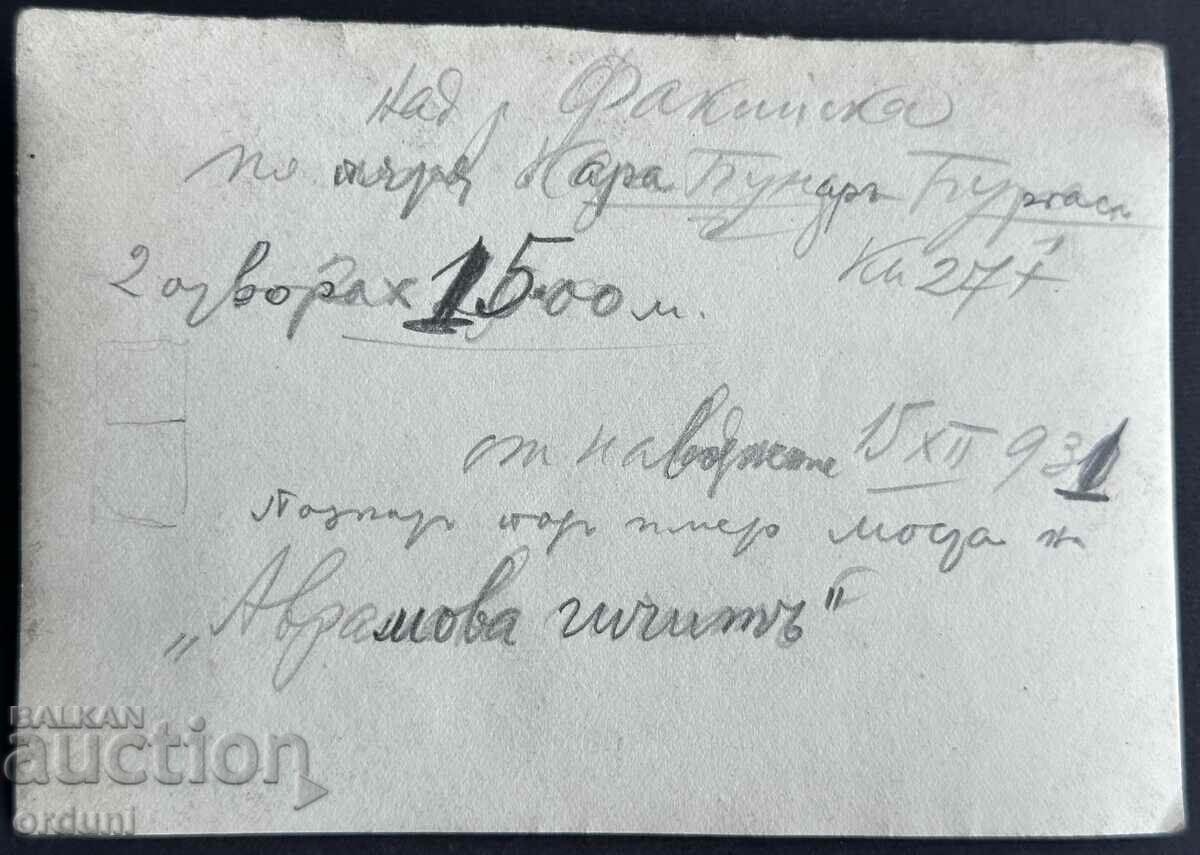 над р Факийска
по пътя Кара Бунаръ Бургасъ
Км 27+
2 отвора х 15.00 м.
от наводнение 15 XII 931
мость на
„Аврамова гичитъ“
BALKAN
auction
orduni